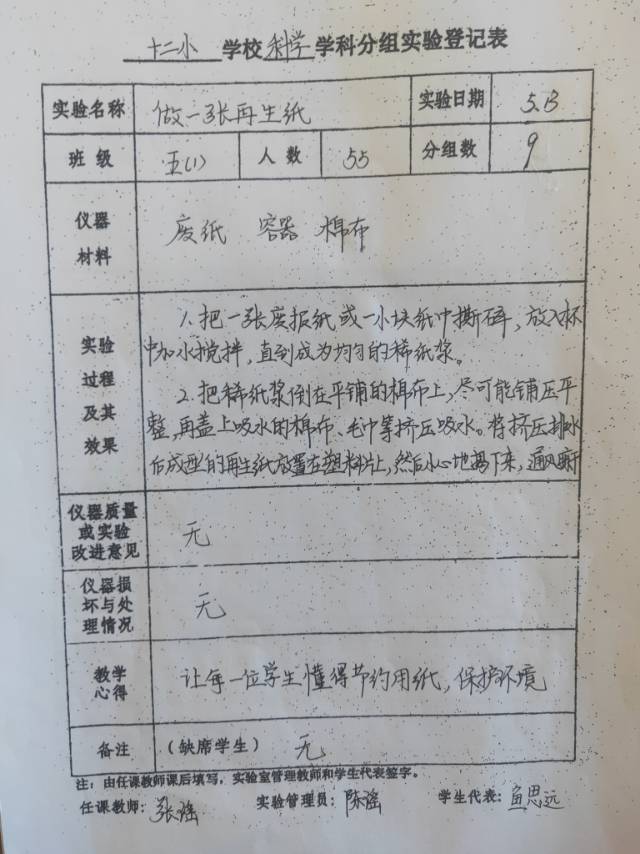 十二小 学校 科学 学科分组实验登记表
实验名称 做一张再生纸 实验日期 5.13
班级 五(1) 人数 55 分组数 9
仪器材料 废纸 容器 棉布
实验过程及其效果
1.把一张废报纸或一小块纸巾撕碎,放入杯
中加水搅拌,直到成为均匀的稀纸浆。
2.把稀纸浆倒在平铺的棉布上,尽可能铺压平
整,再盖上吸水的棉布、毛巾等挤压吸水。将挤压排水
后成型的再生纸放置在塑料片上,然后小心地揭下来,通风晾干
仪器质量或实验改进意见 无
仪器损坏与处理情况 无
教学心得 让每一位学生懂得节约用纸,保护环境
备注 (缺席学生) 无
注:由任课教师课后填写,实验室管理教师和学生代表签字。
任课教师:张谣 实验管理员:陈谣 学生代表:鱼思远